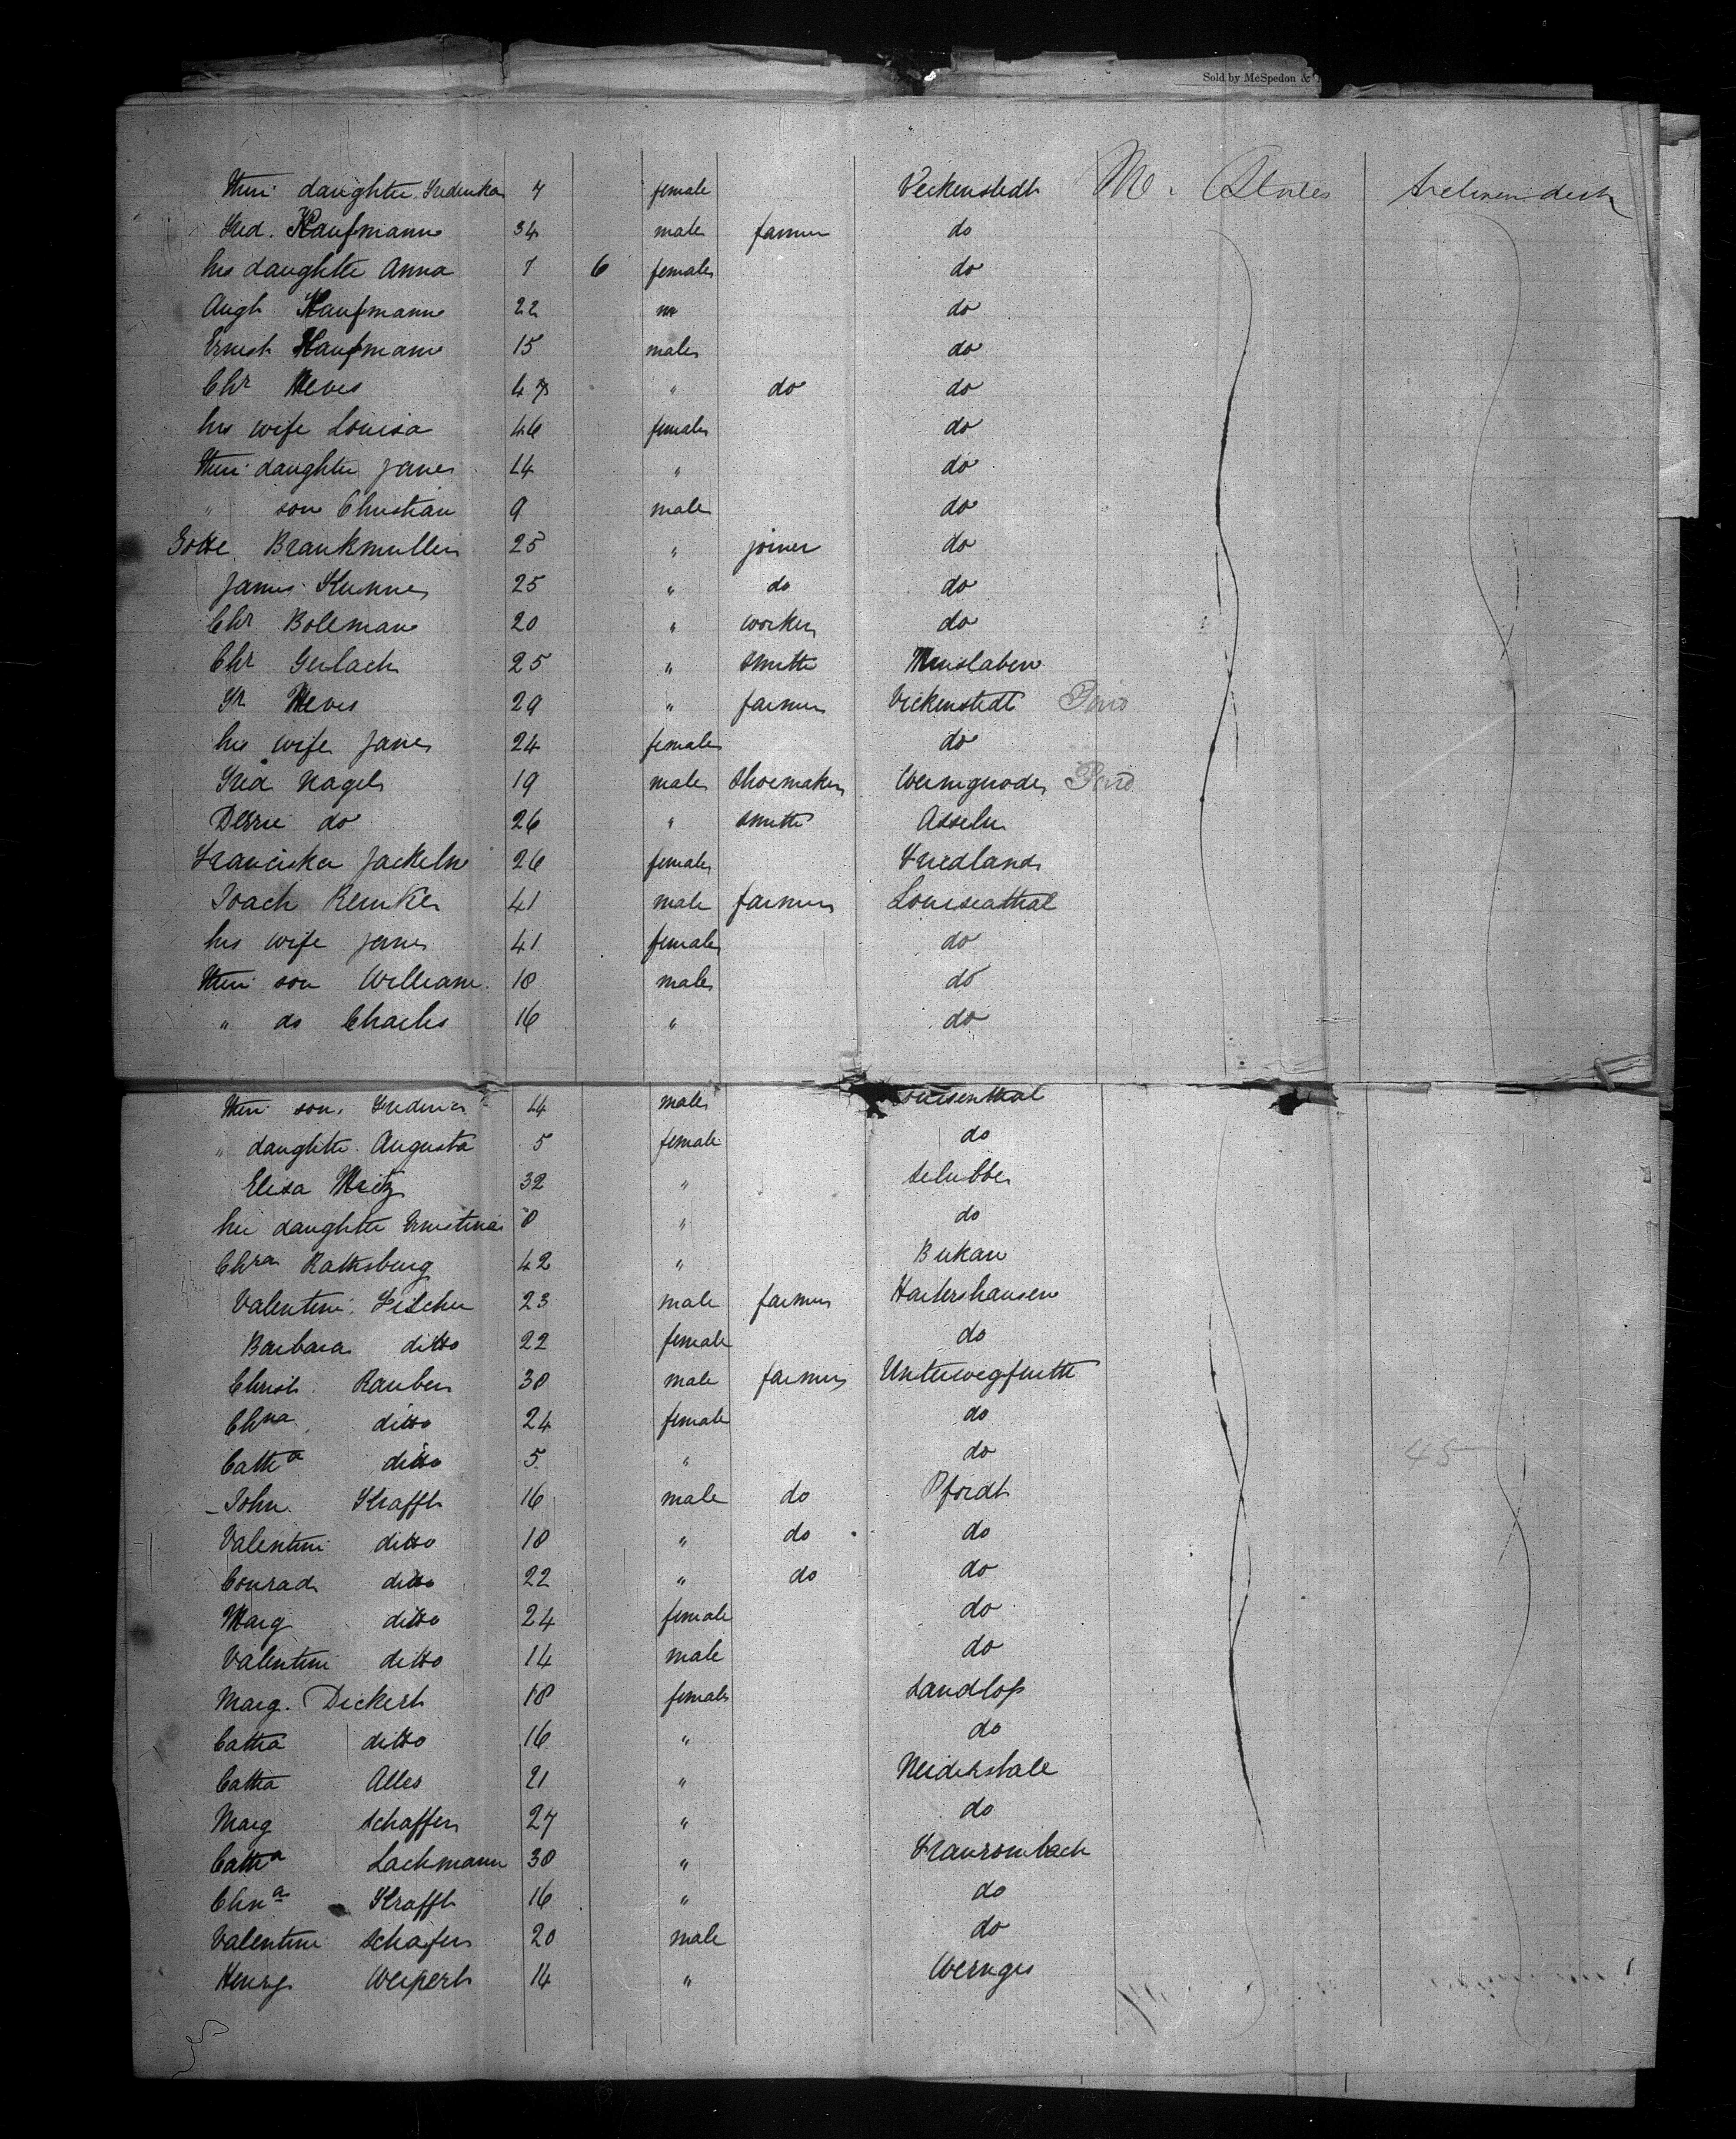 Sold by McSpedon &
Their daughter Frederika 7 female Veckenstedt U. States between deck
Fred. Kaufmann 34 male farmer do
his daughter Anna 1 6 female do
Augt Kaufmann 22 m do
Ernest Kaufmann 15 male do
Chr Meves 47 " do do
his wife Louisa 46 female do
Their daughter Jane 14 " do
" son Christian 9 male do
Gotte Brankmuller 25 " joiner do
James Kuhne 25 " do do
Chr Bolleman 20 " worker do
Chr Gerlach 25 " smith Minslaben
Fr Meves 29 " farmer Vickenstedt
his wife Jane 24 female do
Fred Nagel 19 male shoemaker Wernigerode
do 26 " smith Asseln
Franciska Jackeln 26 female Friedland
Joach Reinke 41 male farmer Louiseathal
his wife Jane 41 female do
Their son William 18 male do
" do Charles 16 " do
Their son Frederic 14 male Louisenthal
" daughter Augusta 5 female do
Elisa 32 " Selubbe
her daughter Ernestina 8 " do
Chra Rathsburg 42 " Bukau
Valentin Fischer 23 male farmer Hartershausen
Barbara ditto 22 female do
Christ. Rauber 30 male farmer Unterwegfurth
Chna ditto 24 female do
Catha ditto 5 " do
John Krafft 16 male do Pfordt
Valentin ditto 18 " do do
Conrad ditto 22 " do do
Marg ditto 24 female do
Valentin ditto 14 male do
Marg. Dickert 18 female Sandlofs
Catha ditto 16 " do
Catha Alles 21 " Neiderstale
Marg Schaffer 27 " do
Catha Lachmann 30 " Fraurombach
Chna Krafft 16 " do
Valentin Schafer 20 male do
Henry Weipert 14 " Wernges
45